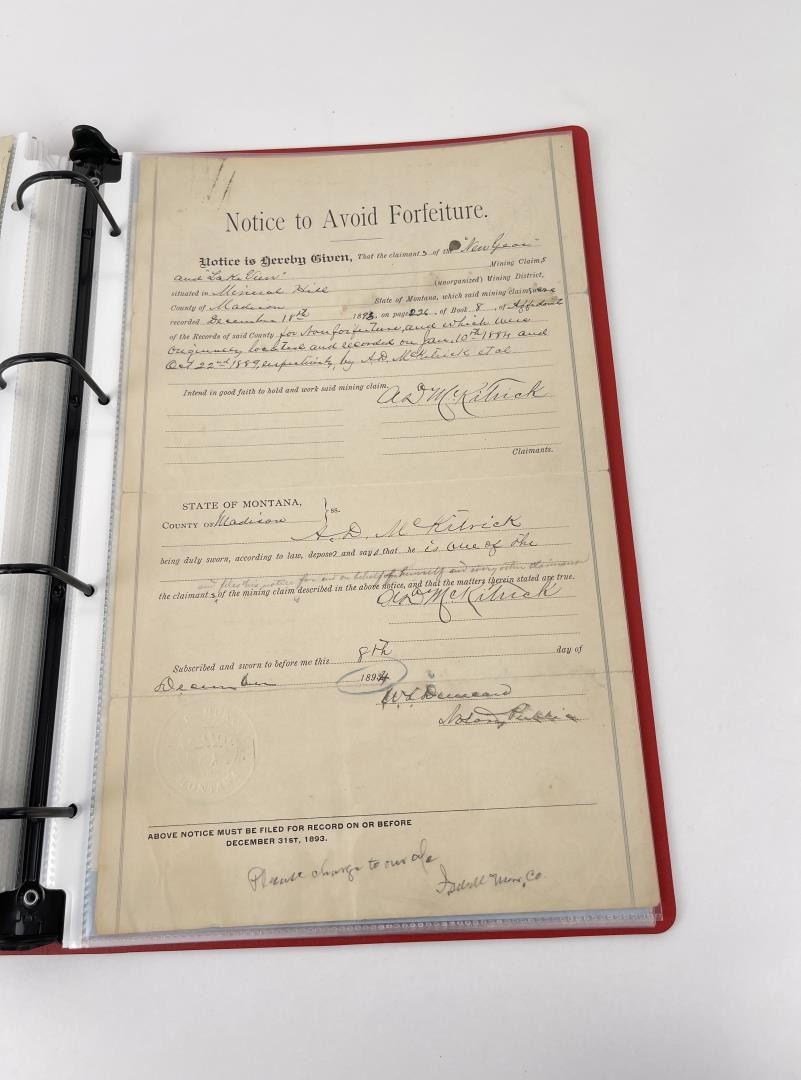 Notice to Avoid Forfeiture.
Notice is Hereby Given, That the claimants of the "New Year"
and "Lake View" Mining Claims
situated in Mineral Hill (unorganized) Mining District,
County of Madison State of Montana, which said mining claims were
recorded December 18th 1893, on page 226, of Book 8, of Affidavit
of the Records of said County for Nonforfeiture, and which were
originally located and recorded on Jan. 10th 1884 and
Oct 22nd 1889, respectively, by A.D. McKitrick et al
Intend in good faith to hold and work said mining claim.
A D McKitrick
Claimants.
STATE OF MONTANA,
COUNTY OF Madison } ss.
A. D. McKitrick
being duly sworn, according to law, deposes and says that he is one of the
and files this notice for and on behalf of himself and every other claimant
the claimants of the mining claim described in the above notice, and that the matters therein stated are true.
A D McKitrick
Subscribed and sworn to before me this 8th day of
December 1894
W L Duncan
Notary Public
ABOVE NOTICE MUST BE FILED FOR RECORD ON OR BEFORE
DECEMBER 31ST, 1893.
Please charge to our a/c
Merc. Co.